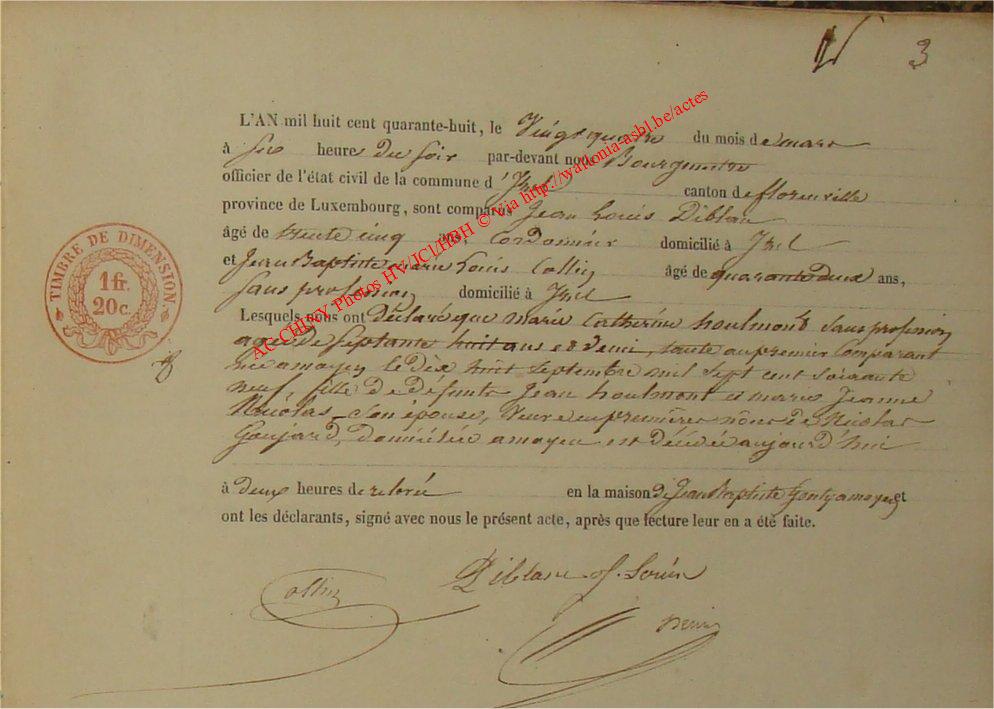 3
L'AN mil huit cent quarante-huit, le Vingt quatre du mois de mars
à Six heures du Soir par-devant nous Bourgmestre
officier de l'état civil de la commune d'Izel canton de florenville
province de Luxembourg, sont comparus Jean Louis Diblan
âgé de trente cinq ans, Cordonnier domicilié à Izel
et Jean Baptiste marie Louis Collin âgé de quarante deux ans,
Sans profession domicilié à Izel
Lesquels nous ont déclaré que marie Catherine houlmont Sans profession
agée de Septante huit ans et demi, tante au premier Comparant
née a moyen le dix huit Septembre mil Sept cent Soixante
neuf fille de défunts Jean houlmont et marie Jeanne
Nicolas Son épouse, Veuve en premières nôces de Nicolas
Goujard, domiciliée a moyen est décédée aujourd'hui
à deux heures de relevée en la maison de Jean Baptiste a moyen et
ont les déclarants, signé avec nous le présent acte, après que lecture leur en a été faite.
TIMBRE DE DIMENSION.
1 fr.
20 c.
Collin
Diblan
AC CHINY Photos HV/JCl/HBH © via http://wallonia-asbl.be/actes